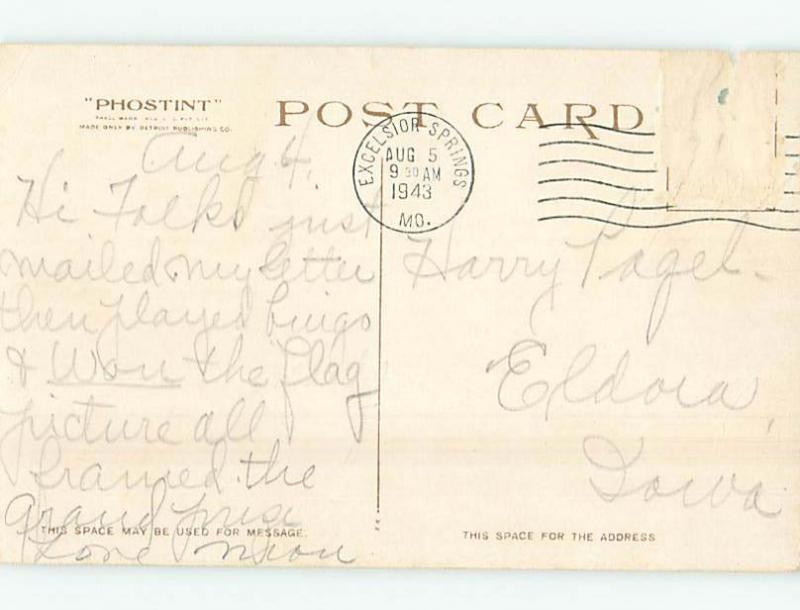 "PHOSTINT"
MADE ONLY BY DETROIT PUBLISHING CO.
POST CARD
EXCELSIOR SPRINGS
AUG 5
9 30 AM
1943
MO.
Aug 4,
Hi Folks just
mailed my letter
then played bingo
& Won the flag
picture all
framed. the
grand prize
Love
THIS SPACE MAY BE USED FOR MESSAGE.
Harry Pagel -
Eldora,
Iowa
THIS SPACE FOR THE ADDRESS